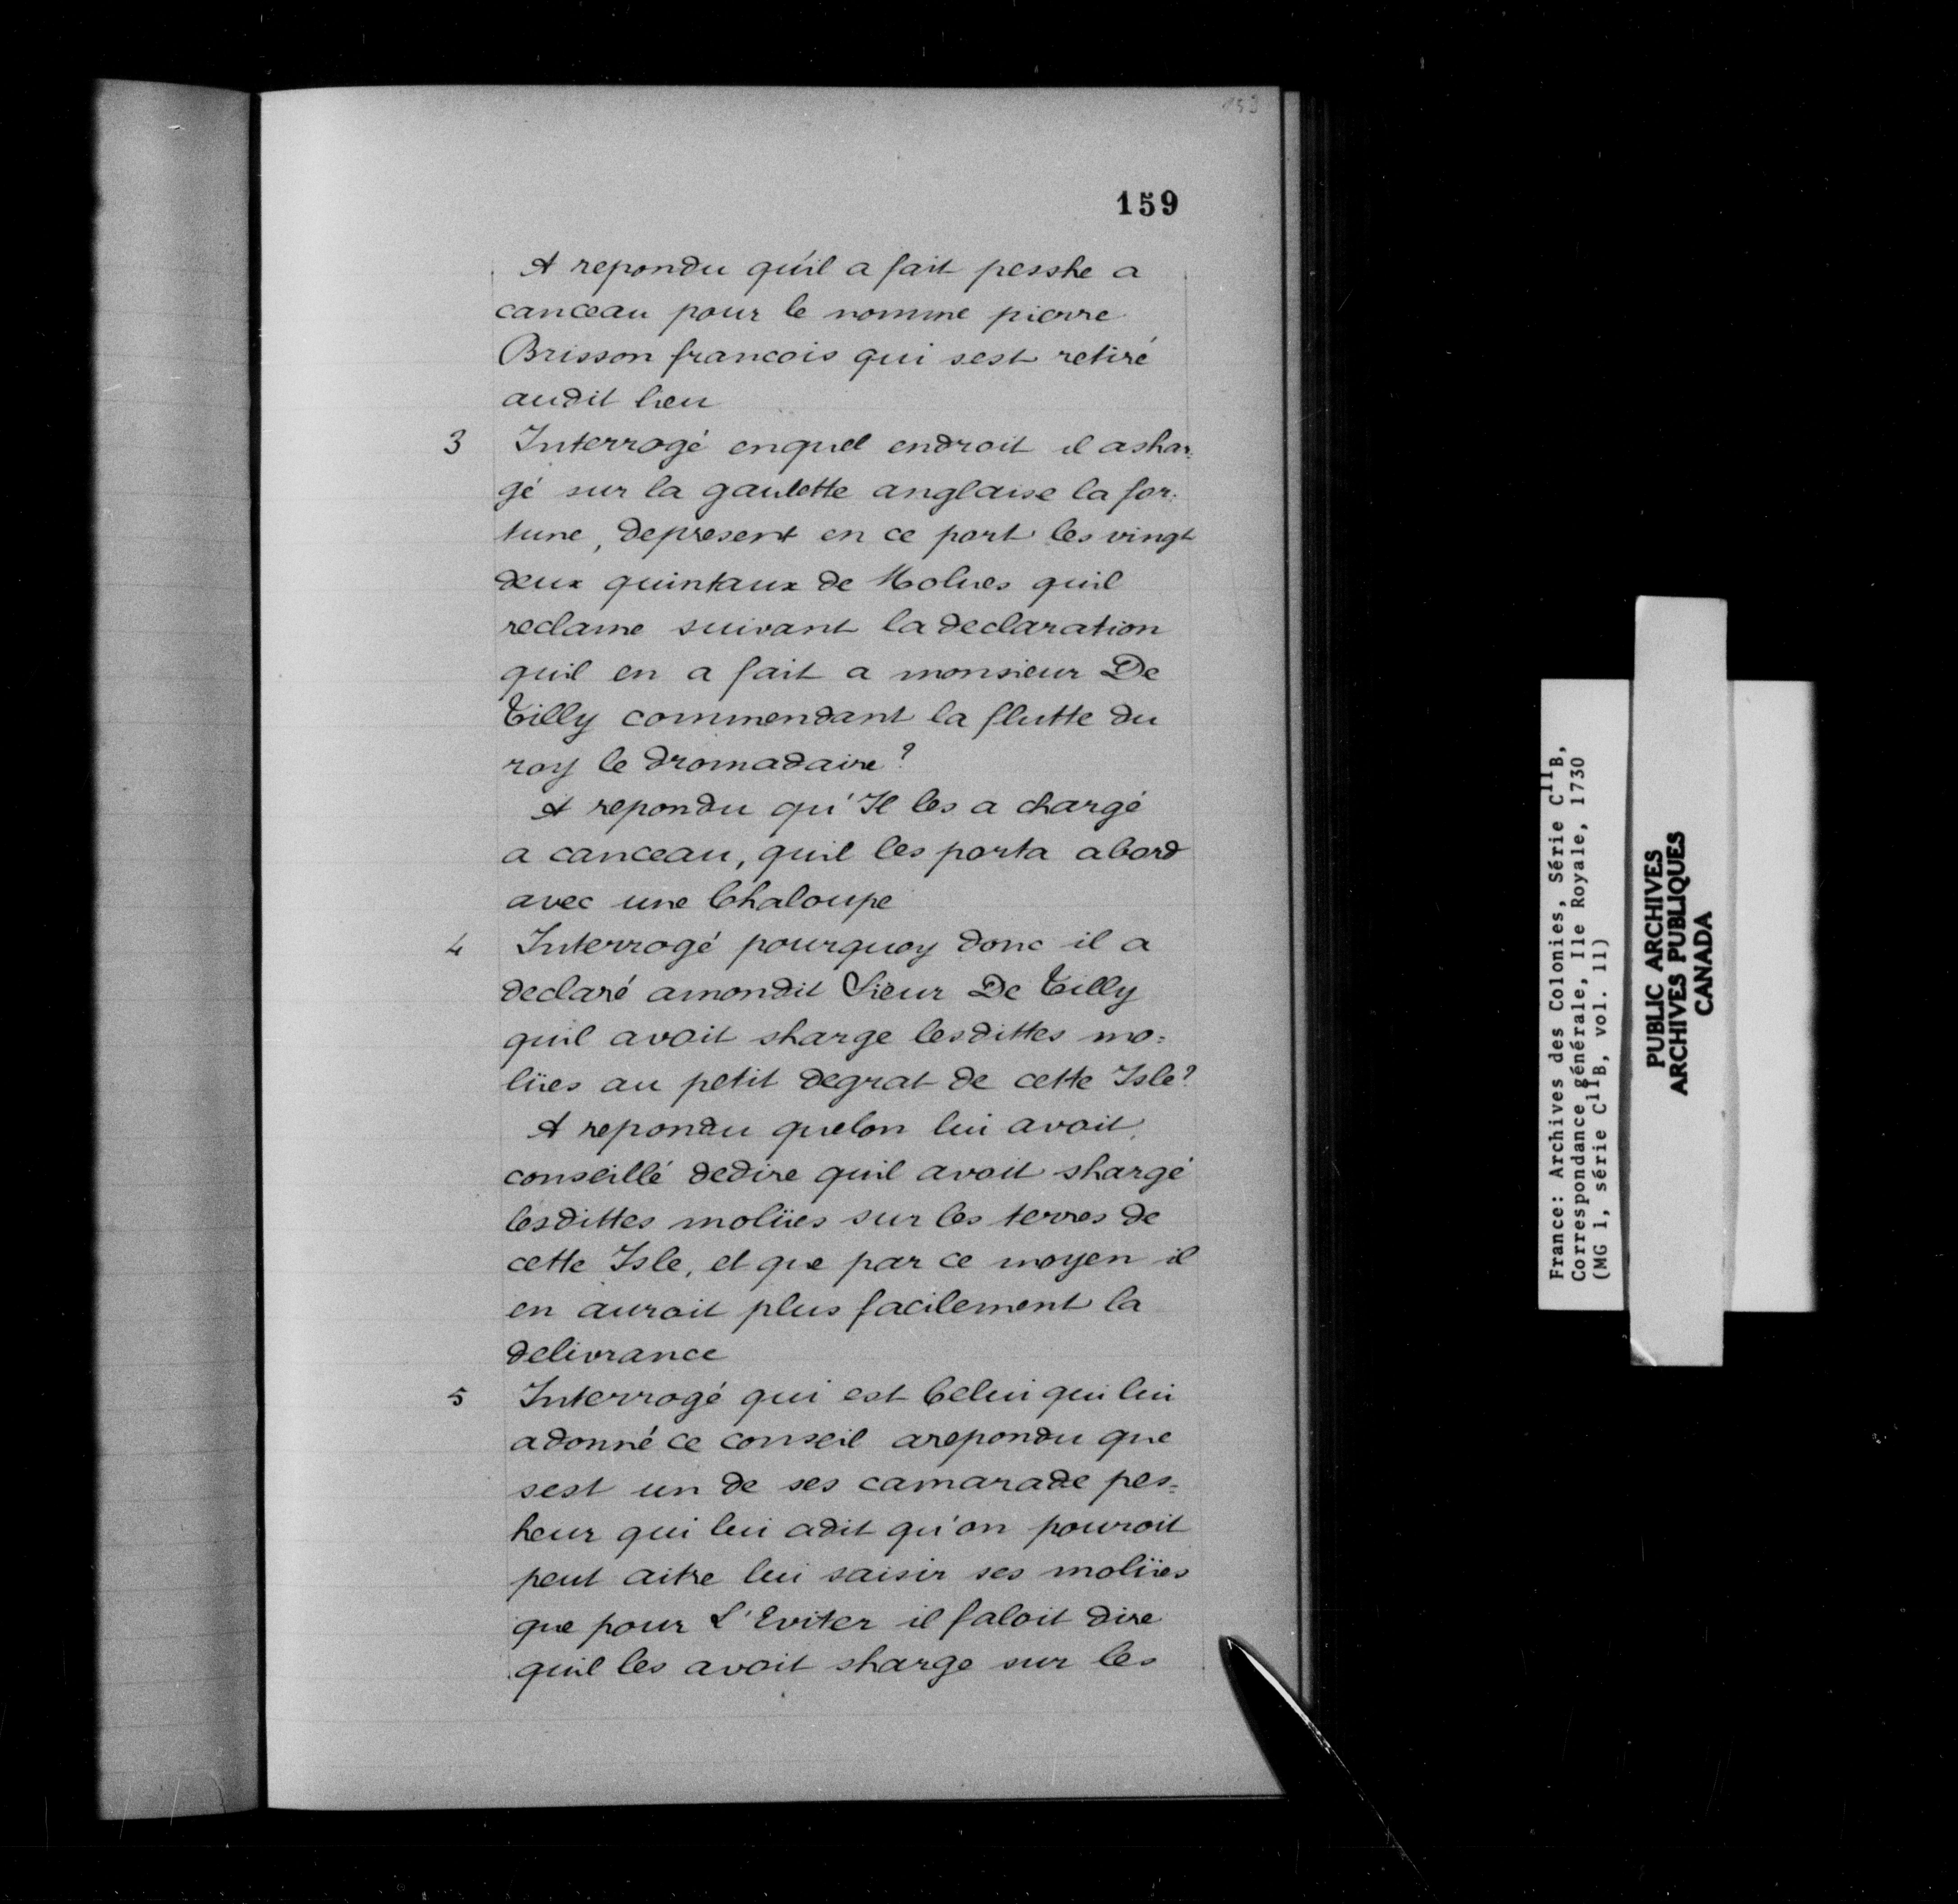 153
159
A repondu qu'il a fait pesshe a
canceau pour le nomme pierre
Brisson francois qui sest retiré
audit lieu
3 Interrogé enquel endroit il ashar:
gé sur la gaulette anglaise la for:
tune, depresent en ce port les vingt
deux quintaux de Molues quil
reclame suivant la declaration
quil en a fait a monsieur De
Tilly commendant la flutte du
roy le dromadaire?
A repondu qu'Il les a chargé
a canceau, quil les porta abord
avec une Chaloupe
4 Interrogé pourquoy donc il a
declaré amondit Sieur De Tilly
quil avoit sharge lesdittes mo:
lües au petit degrat de cette Isle?
A repondu quelon lui avoit
conseillé dedire quil avoit shargé
lesdittes molües sur les terres de
cette Isle, et que par ce moyen il
en auroit plus facilement la
delivrance
5 Interrogé qui est Celui qui lui
adonné ce conseil arepondu que
sest un de ses camarade pes=
heur qui lui adit qu'on pouroit
peut aitre lui saisir ses molües
que pour L'Eviter il faloit dire
quil les avoit sharge sur les
France: Archives des Colonies, Série C11B,
Correspondance générale, Ile Royale, 1730
(MG 1, série C11B, vol. 11)
PUBLIC ARCHIVES
ARCHIVES PUBLIQUES
CANADA